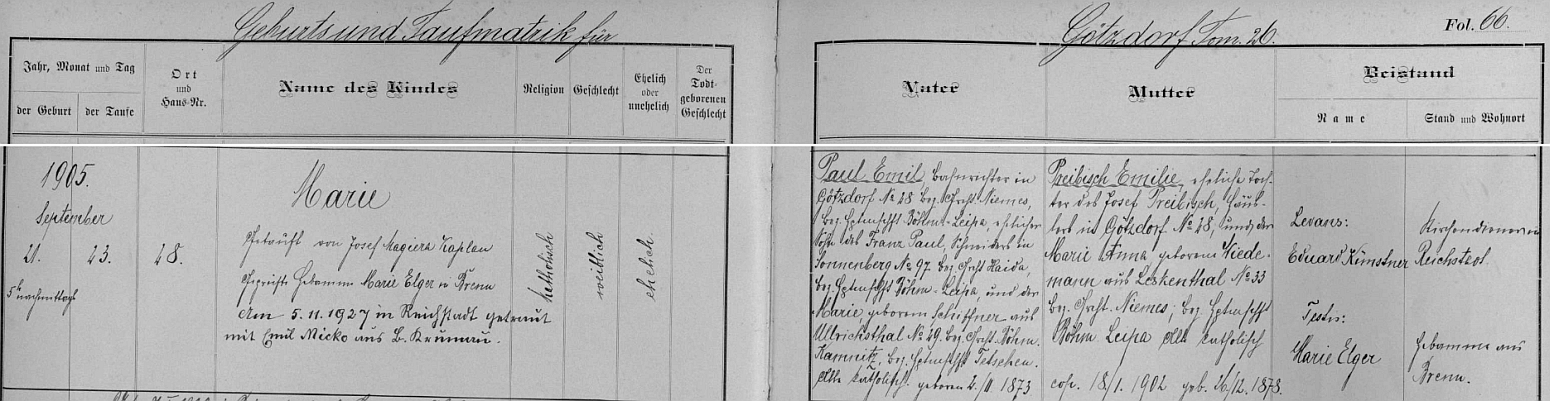 Geburts und Taufmatrik für
Götzdorf Tom. 26.
Fol. 66.
Jahr, Monat und Tag
der Geburt
der Taufe
Ort
und
Haus-Nr.
Name des Kindes
Religion
Geschlecht
Ehelich
oder
unehelich
Der
Todt-
geborenen
Geschlecht
Vater
Mutter
Beistand
Name
Stand und Wohnort
1905.
September
21.
23.
28.
5h nachmittags
Marie
Getauft von Josef Magiera Kaplan
Geprüfte Hebamme Marie Elger in Brenn
Am 5.11.1927 in Reichstadt getraut
mit Emil Micko aus B. Krumau.
katholisch
weiblich
ehelich
Paul Emil, Bahnwächter in
Götzdorf No 28 Bez. Gcht Niemes,
Bez. Hptmschft Böhm-Leipa, ehelicher
Sohn des Franz Paul, Schneiders in
Sonnenberg No 97 Bez. Gcht Haida,
Bez. Hptmschft Böhm-Leipa, und der
Marie, geborenen Schiffner aus
Ullrichsthal No 49 Bez. Gcht Böhm.
Kamnitz, Bez. Hptmschft Tetschen.
Alle katholisch. geboren 2./11 1873
Preibisch Emilie, eheliche Toch-
ter des Josef Preibisch, Häus-
lers in Götzdorf No 28, und der
Marie Anna geborenen Wiede-
mann aus Leskenthal No 33
Bez. Gcht. Niemes; Bez. Hptmschft
Böhm Leipa Alle katholisch
cop. 18/1. 1902 geb. 26/12. 1878.
Levans:
Eduard Künstner
Kirchendiener in
Reichstadt
Testes:
Marie Elger
Hebamme aus
Brenn.